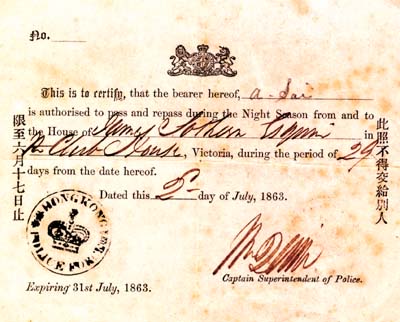 No.
This is to certify, that the bearer hereof, a-Sai
is authorised to pass and repass during the Night Season from and to
the House of Esquire in
Club House, Victoria, during the period of 29
days from the date hereof.
Dated this 2d day of July, 1863.
此照不得交給別人
限至六月十七日止
HONGKONG
POLICE FORCE
Captain Superintendent of Police.
Expiring 31st July, 1863.